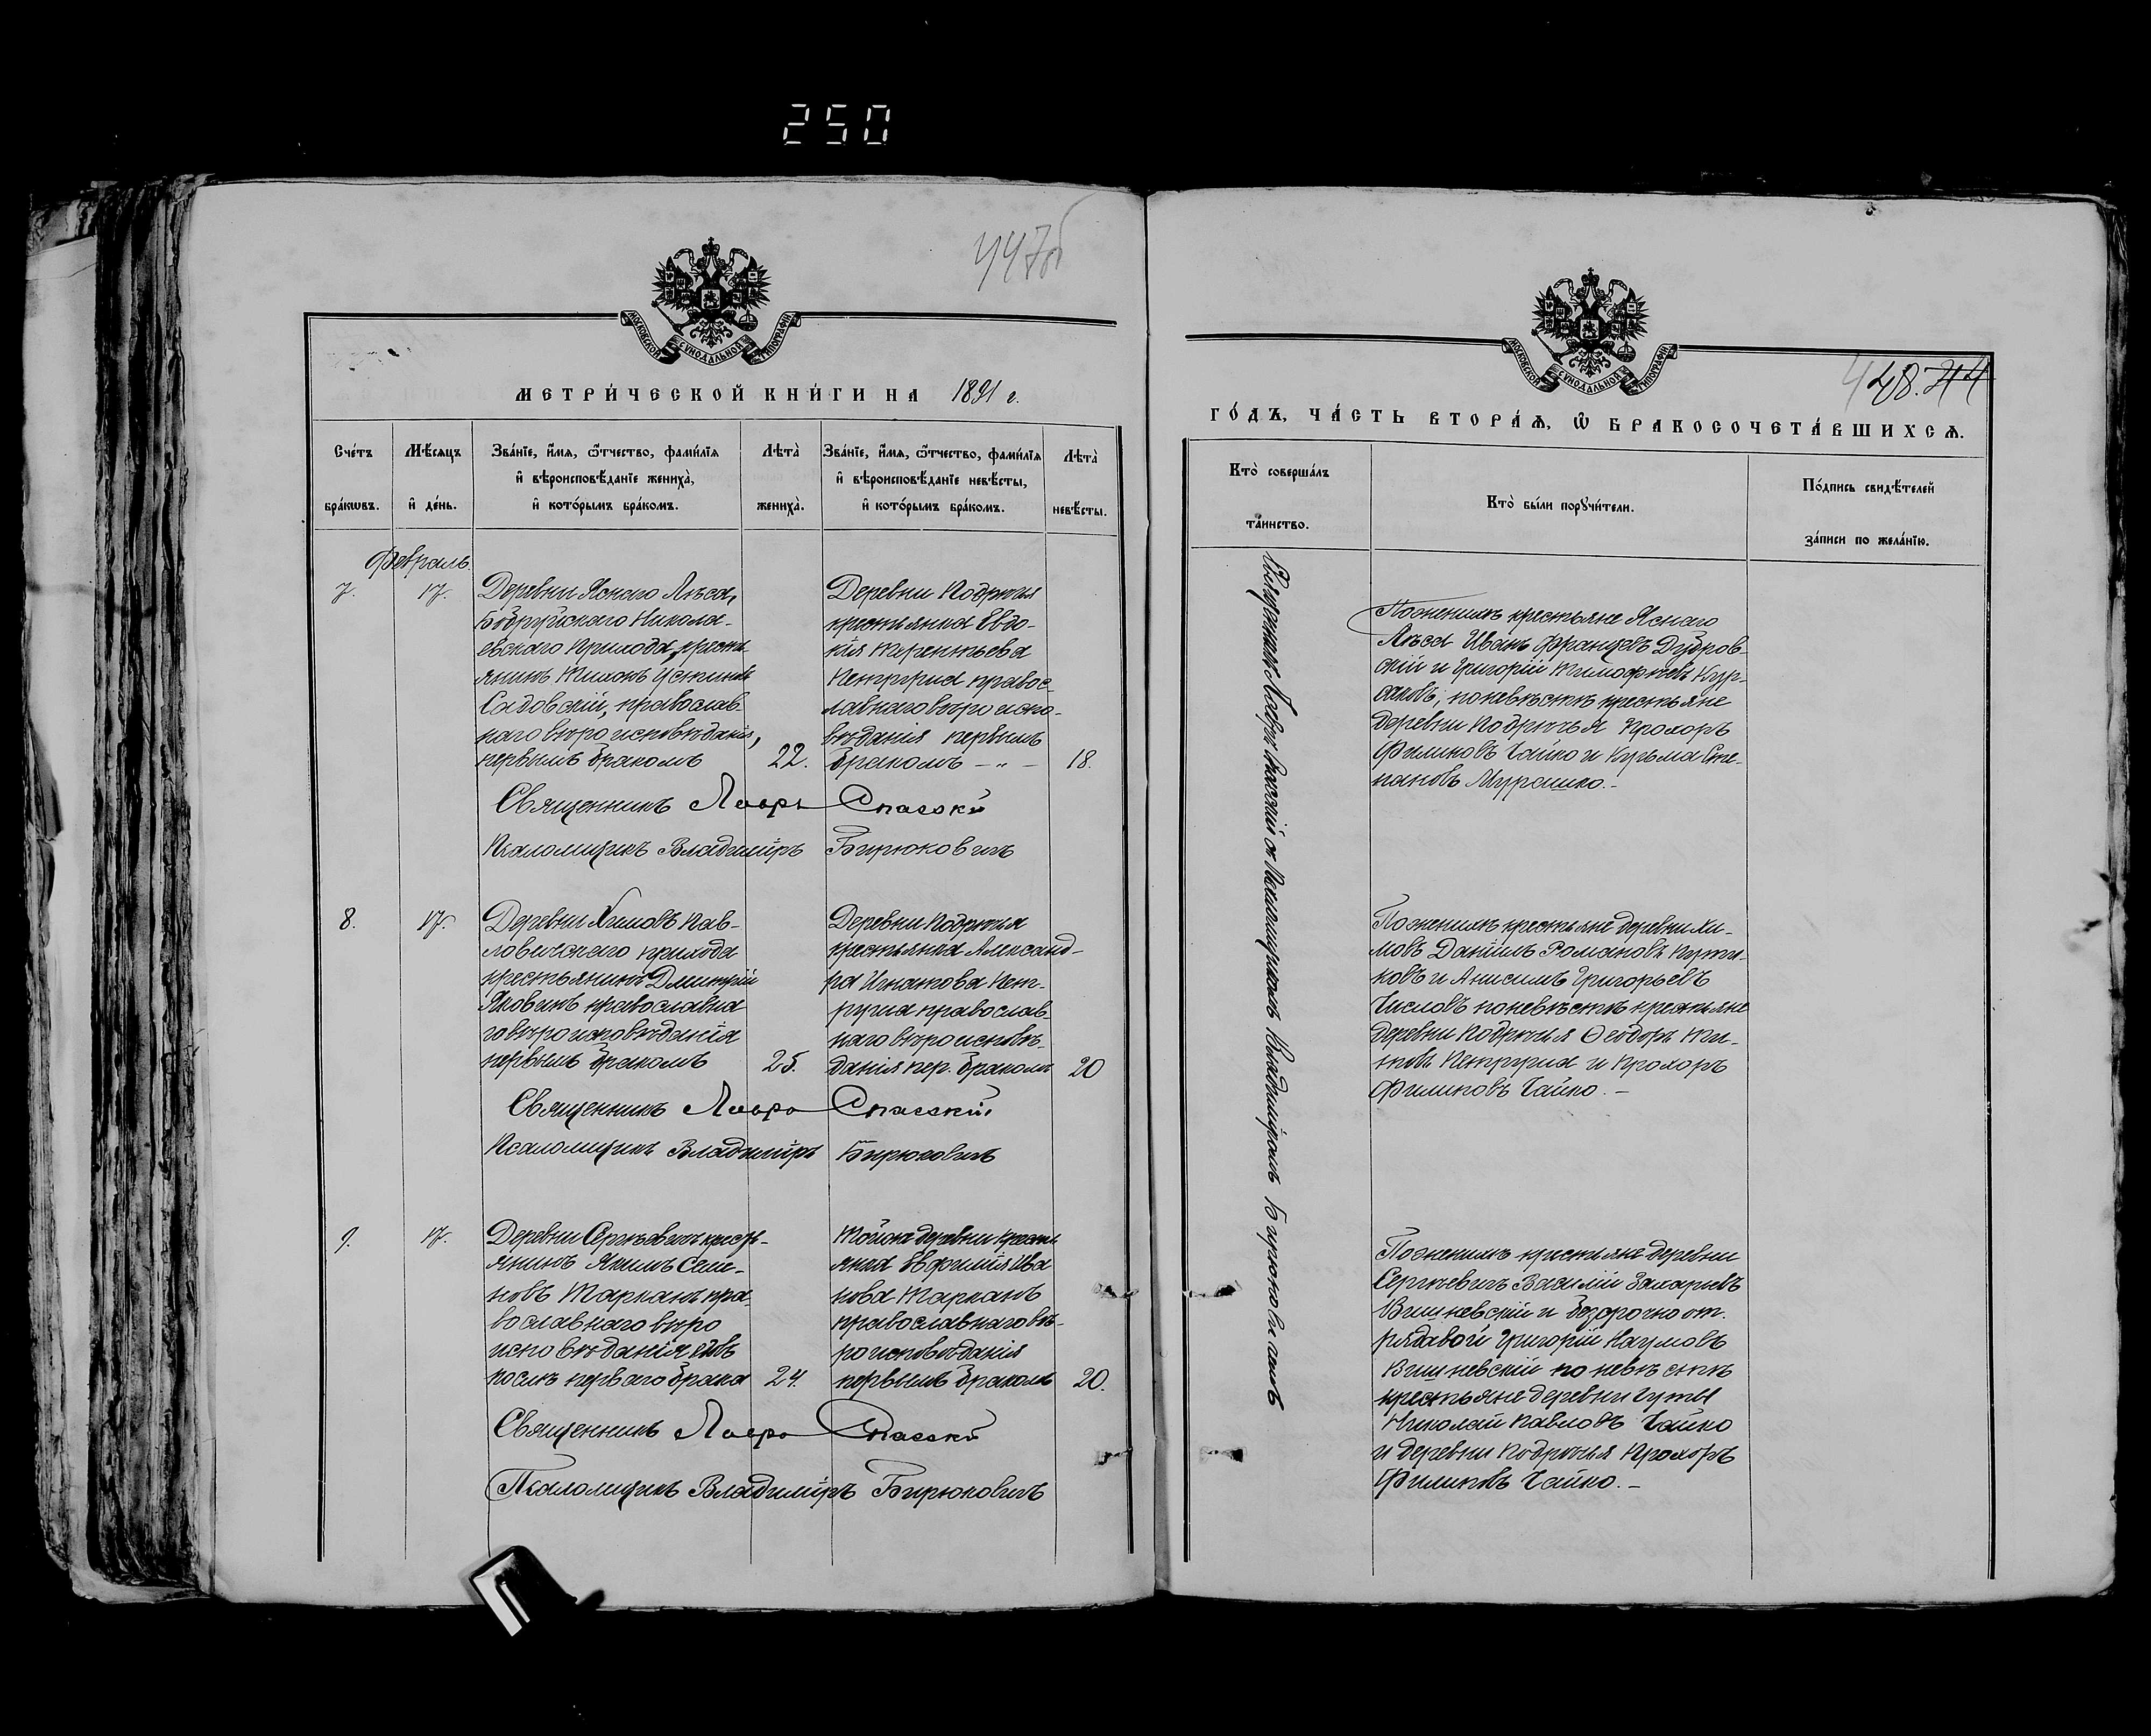 250
447об
МОСКОВСКОЙ СѴНОДАЛЬНОЙ ТИПОГРАФІИ
МЕТРИ́ЧЕСКОЙ КНИ́ГИ НА 1891 г.
Сче́тъ бра́кѡвъ.
Мѣ́сяцъ и҆ де́нь.
Зва́нїе, и҆́мѧ, ѻ҆́тчество, фами́лїѧ
и҆ вѣроисповѣ́данїе жениха̀,
и҆ кото́рымъ бра́комъ.
Лѣта̀ жениха̀.
Зва́нїе, и҆́мѧ, ѻ҆́тчество, фами́лїѧ
и҆ вѣроисповѣ́данїе невѣ́сты,
и҆ кото́рымъ бра́комъ.
Лѣта̀ невѣ́сты.
Февраль.
7.
17.
Деревни Яснаго Лѣса,
Бобруйскаго Никола-
евскаго прихода, кресть
янинъ Тихонъ Устиновъ
Садовскій, православ-
наго вѣроисповѣданія,
первымъ бракомъ
22.
Деревни Подречья
крестьянка Евдо-
кія Терентьева
правос-
лавнаго вѣроиспо-
вѣданія первымъ
бракомъ — „ —
18.
Священникъ Лавръ Спасскій
Псаломщикъ Владиміръ Бирюковичъ
8.
17.
Деревни Химовъ Пав-
ловичскаго прихода
крестьянинъ Дмитрій
православна
го вѣроисповѣданія
первымъ бракомъ
25.
Деревни Подречья
крестьянка Александ-
ра Игнатова
православ-
наго вѣроисповѣ-
данія пер. бракомъ
20
Священникъ Лавръ Спасскій
Псаломщикъ Владиміръ Бирюковичъ
9.
17.
Деревни Сергѣевичъ кресть-
янинъ Якимъ Семе-
новъ Тарканъ пра-
вославнаго вѣро
исповѣданія вдовъ
послѣ перваго брака
24.
Тойже деревни кресть
янка Евфимія Ива
нова Тарканъ
православнаго вѣ-
роисповѣданія
первымъ бракомъ
20.
Священникъ Лавръ Спасскій
Псаломщикъ Владиміръ Бирюковичъ
448. 44
МОСКОВСКОЙ СѴНОДАЛЬНОЙ ТИПОГРАФІИ
ГО́ДЪ, ЧА́СТЬ ВТОРА́Ѧ, Ѽ БРАКОСОЧЕТА́ВШИХСѦ.
Кто̀ соверша́лъ
та́инство.
Кто̀ бы́ли порꙋчи́тели.
По́дпись свидѣ́телей
за́писи по жела́нїю.
Священникъ Лавръ Спасскій съ Псаломщикомъ Владиміромъ Бирюковичемъ
По женихѣ крестьяне Яснаго
Лѣса Иванъ Францевъ Дубров-
скій и Григорій Тимофеевъ Кур-
саковъ; по невѣстѣ крестьяне
деревни Подречья Прохоръ
Филиповъ Чайко и Кузьма Сте-
пановъ Мурашко. —
По женихѣ крестьяне деревни Хи-
мовъ Даніилъ Романовъ
и Анисимъ Григорьевъ
Числовъ по невѣстѣ крестьяне
деревни Подречья Ѳеодоръ
и Прохоръ
Филиповъ Чайко. —
По женихѣ крестьяне деревни
Сергѣевичъ Василій Захарьевъ
Вишневскій и безсрочно от.
рядовой Григорій Наумовъ
Вишневскій по невѣстѣ
крестьяне деревни Гуты
Николай Павловъ Чайко
и деревни Подречья Прохоръ
Филиповъ Чайко. —